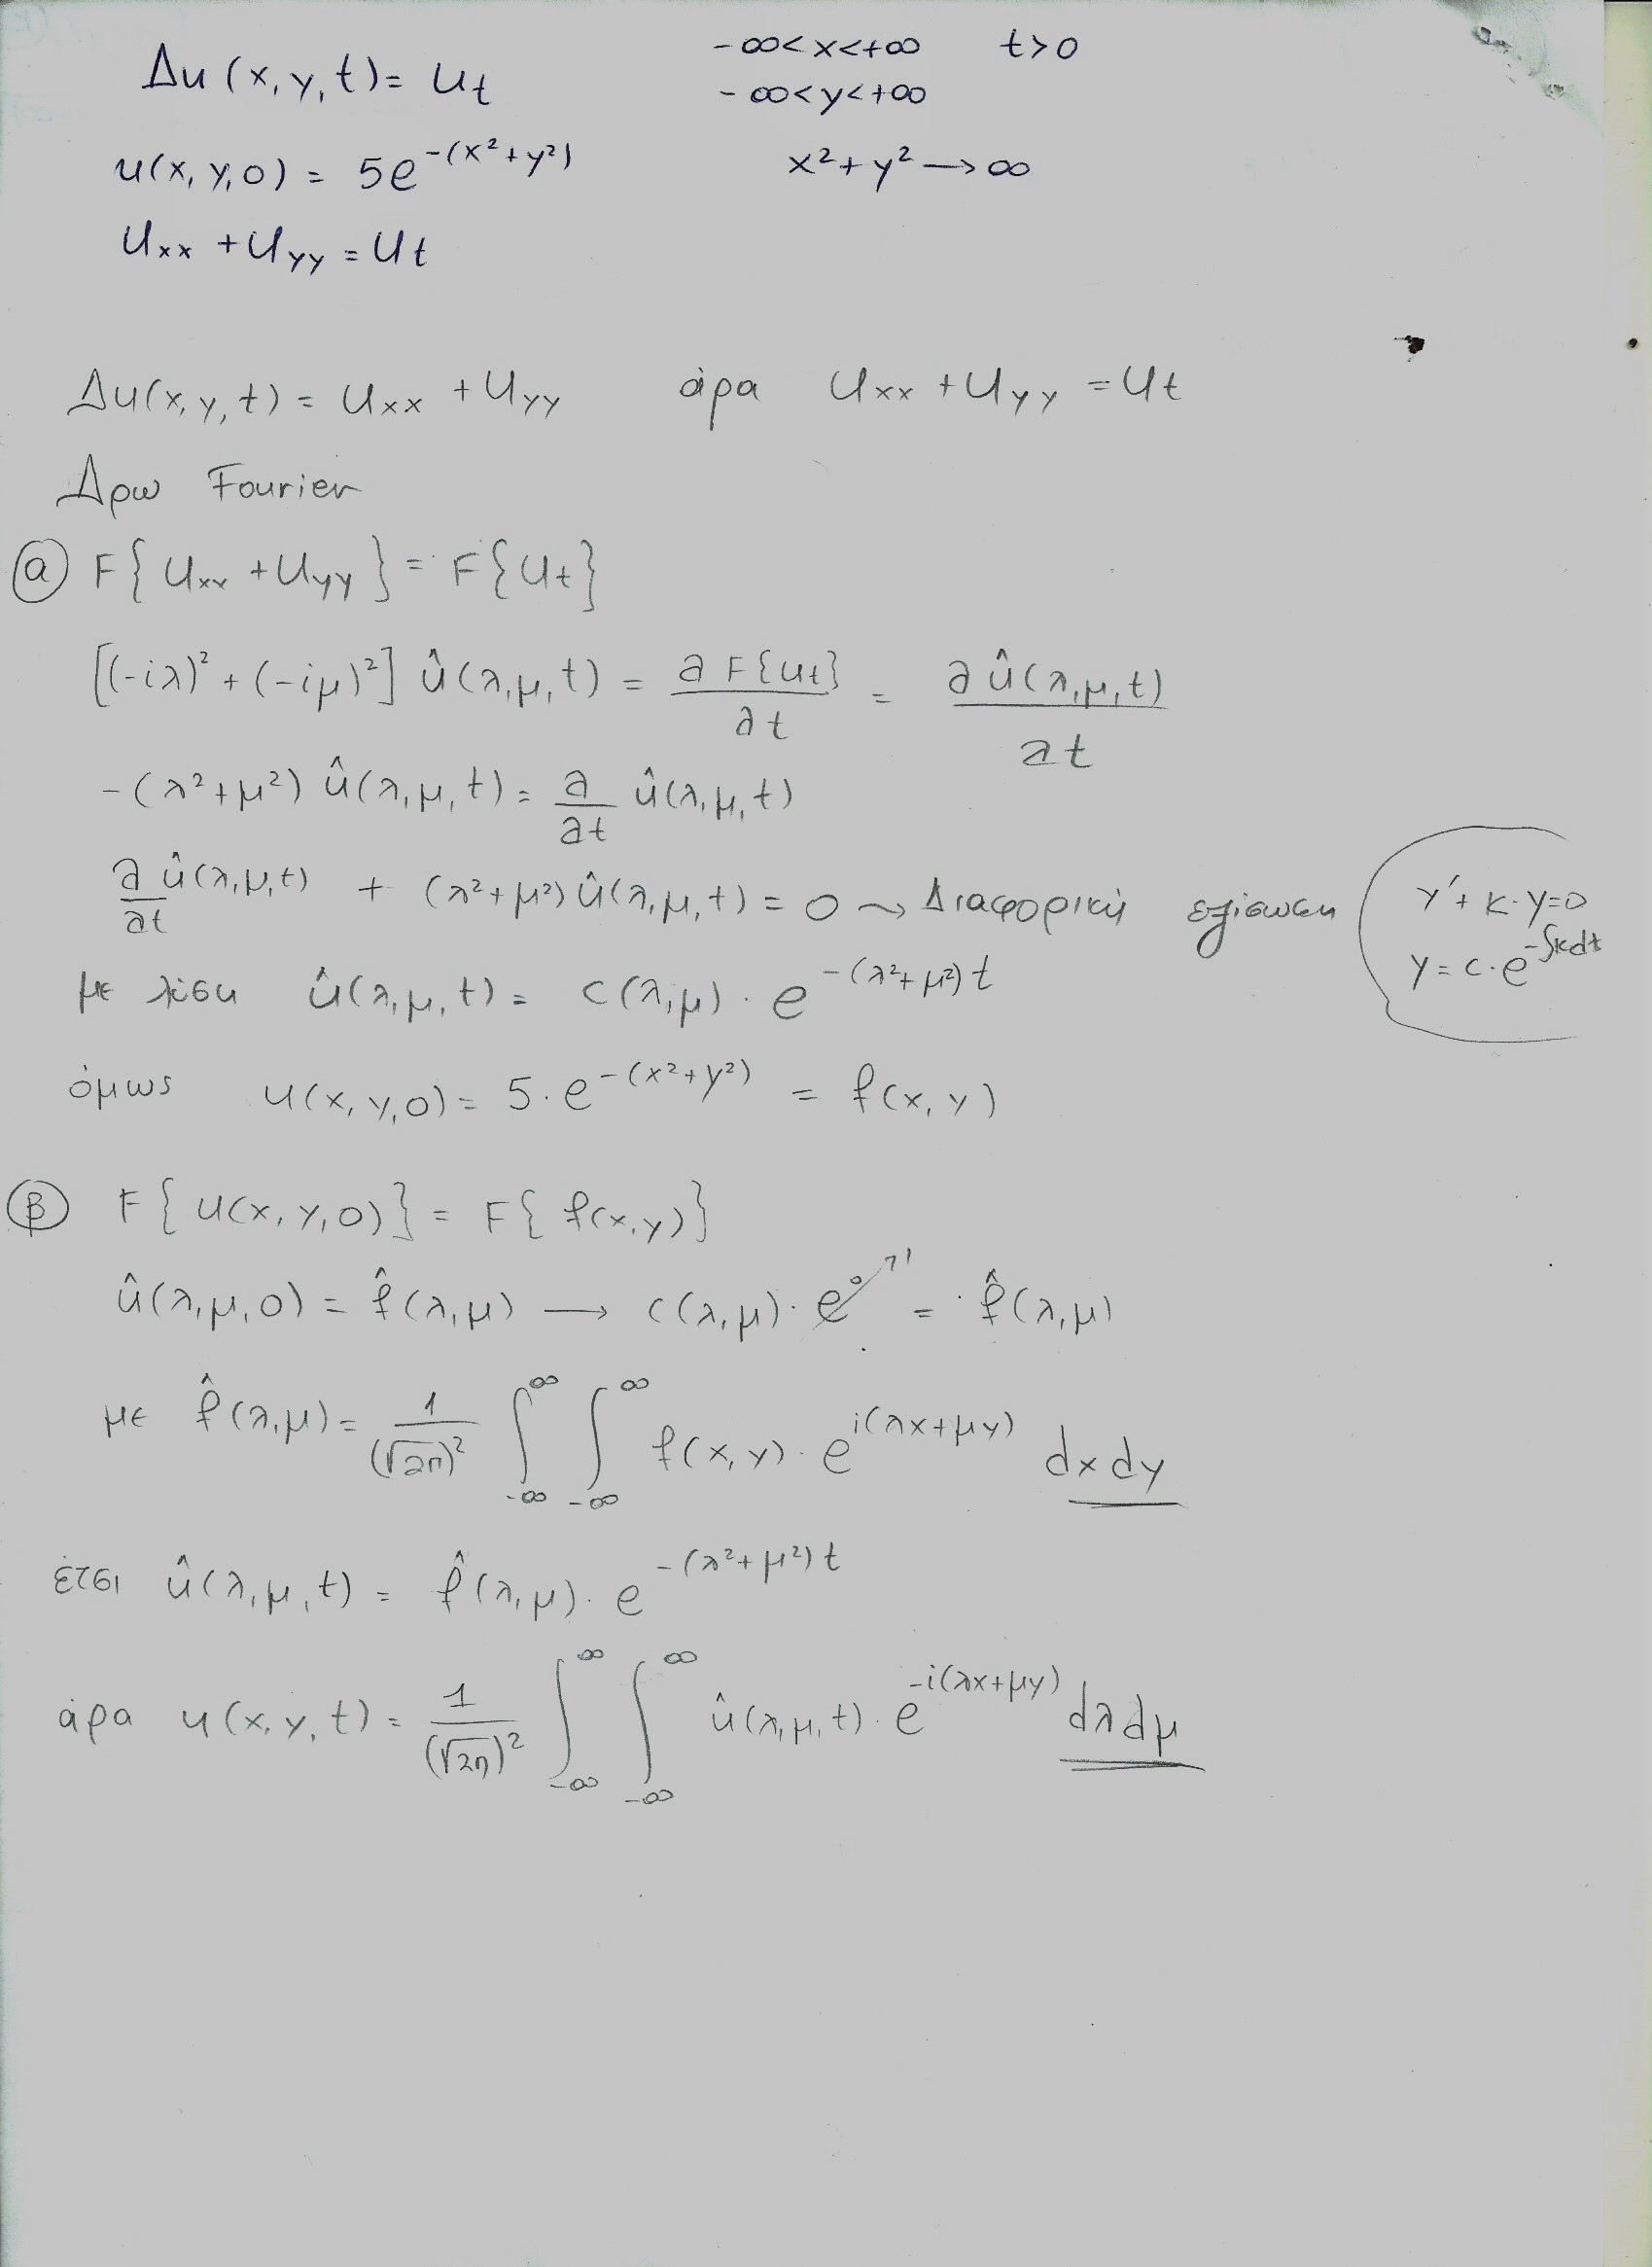 Δu(x,y,t)= u_t    -∞<x<+∞    t>0
-∞<y<+∞
u(x,y,0) = 5e^{-(x²+y²)}    x²+y² → ∞
u_xx + u_yy = u_t
Δu(x,y,t) = u_xx + u_yy    άρα    u_xx + u_yy = u_t
Δρω Fourier
ⓐ F{u_xx + u_yy} = F{u_t}
[(-iλ)² + (-iμ)²] û(λ,μ,t) = ∂F{u_t}/∂t = ∂û(λ,μ,t)/∂t
-(λ²+μ²) û(λ,μ,t) = ∂/∂t û(λ,μ,t)
∂/∂t û(λ,μ,t) + (λ²+μ²) û(λ,μ,t) = 0 ⤳ Διαφορική εξίσωση
y'+ k·y=0
y= c·e^{-∫kdt}
με λύση û(λ,μ,t) = c(λ,μ) · e^{-(λ²+μ²)t}
όμως u(x,y,0) = 5·e^{-(x²+y²)} = f(x,y)
ⓑ F{u(x,y,0)} = F{f(x,y)}
û(λ,μ,0) = f̂(λ,μ) → c(λ,μ)· e⁰ ↗1 = f̂(λ,μ)
με f̂(λ,μ) = 1/(√2π)² ∫_{-∞}^{∞} ∫_{-∞}^{∞} f(x,y)· e^{i(λx+μy)} dxdy
έτσι û(λ,μ,t) = f̂(λ,μ)· e^{-(λ²+μ²)t}
άρα u(x,y,t) = 1/(√2π)² ∫_{-∞}^{∞} ∫_{-∞}^{∞} û(λ,μ,t)· e^{-i(λx+μy)} dλdμ